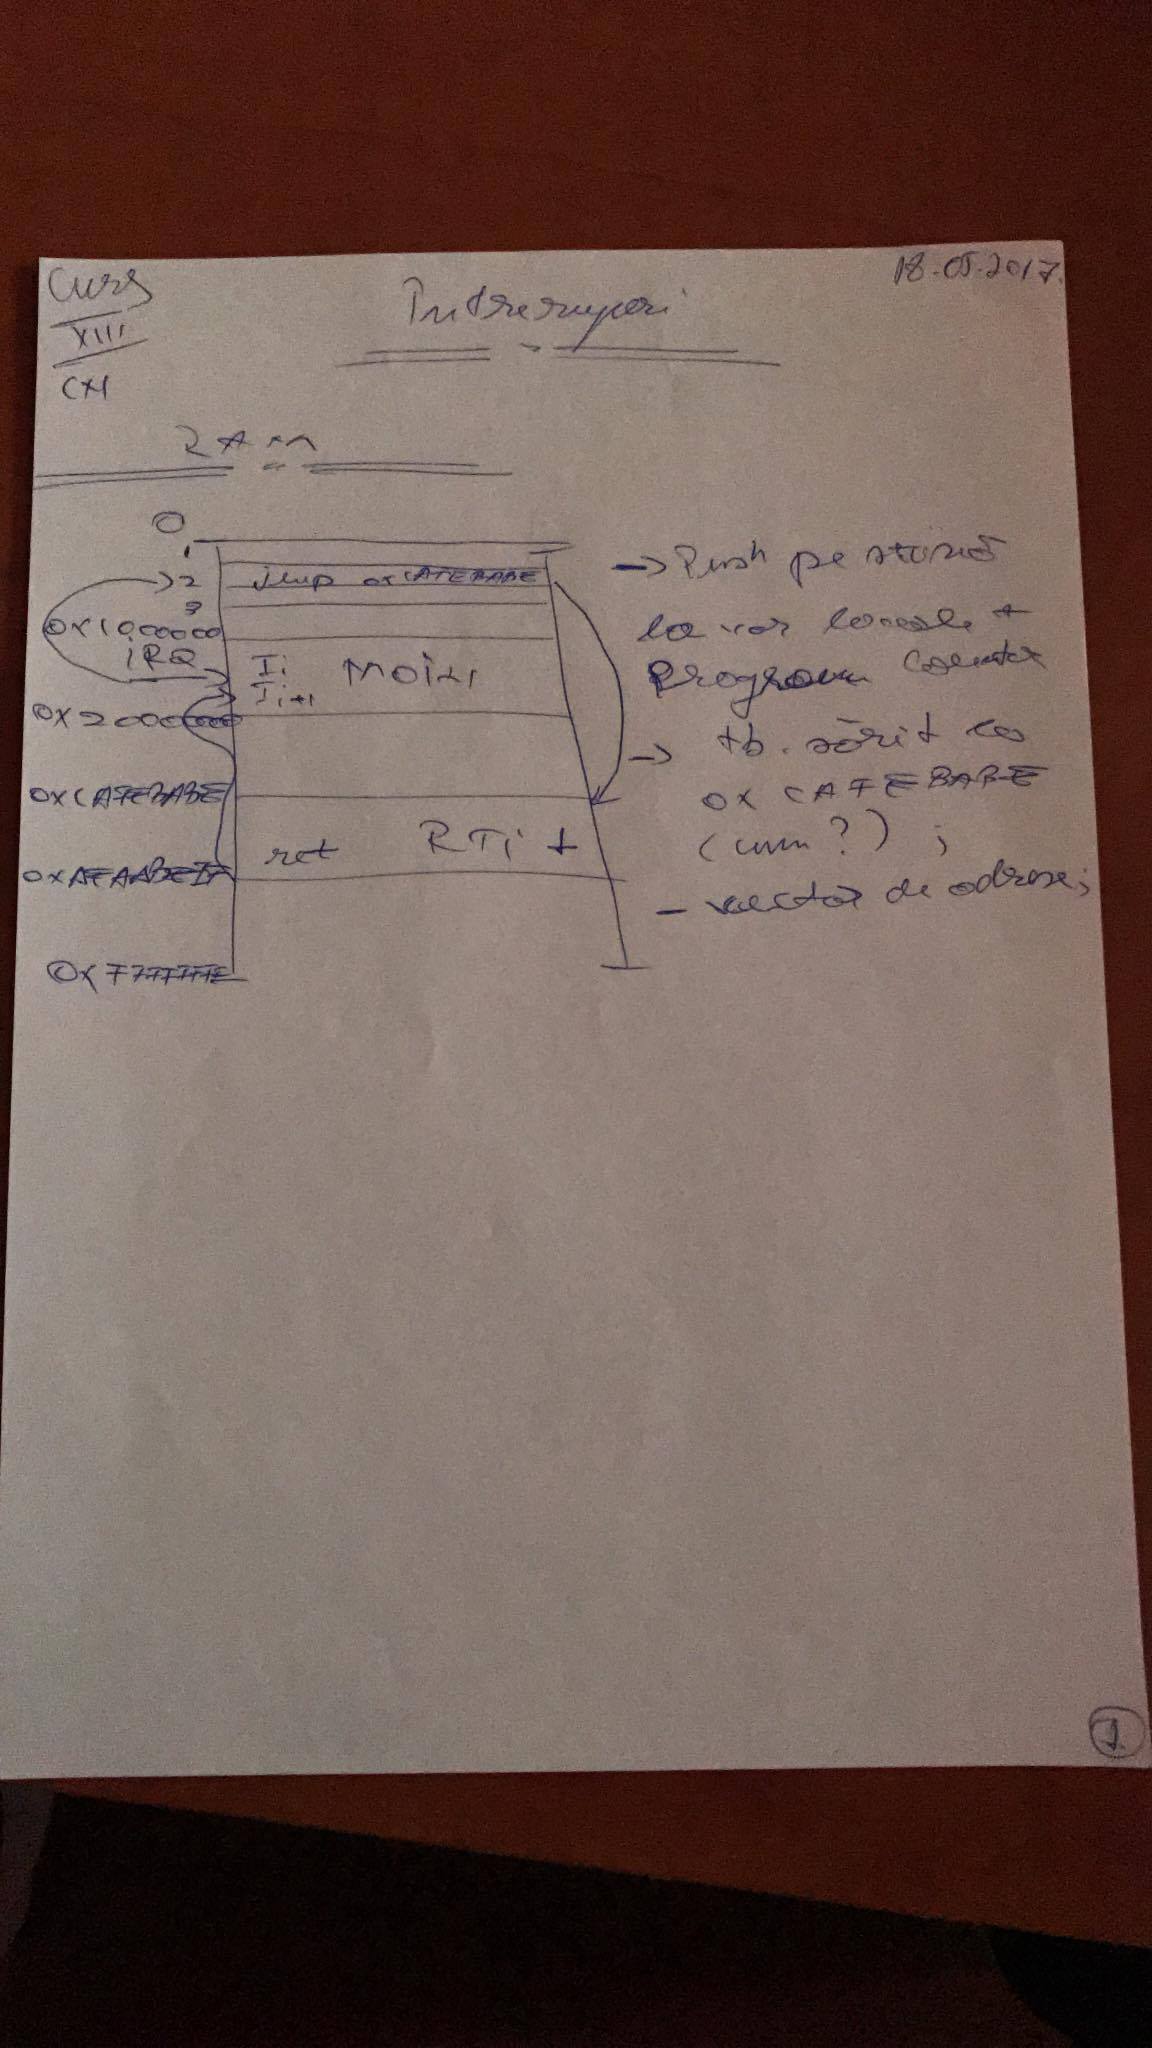 Curs
XIII
18.05.2017.
Întreruperi
RAM
0
1
2
jmp 0xCAFEBABE
3
0x1000000
IRQ
Ii
Ii+1
Main
0x2000000
0xCAFEBABE
ret
RTi
0xFFFFFFFF
-> Push pe stivă
la var locale +
Program Counter
-> tb. sărit la
0xCAFEBABE
(cum?);
- vector de adrese;
1.